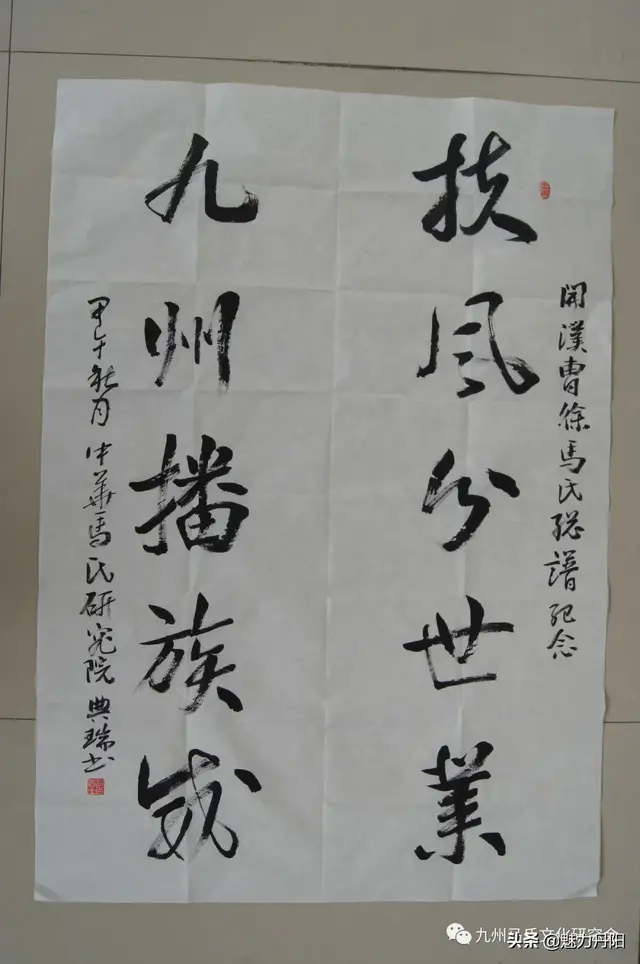 開漢曹徐馬氏總譜纪念
扶風分世業
九州播族威
甲午秋月 中華馬氏研究院 典瑞书
九州马氏文化研究会
头条@魅力丹阳